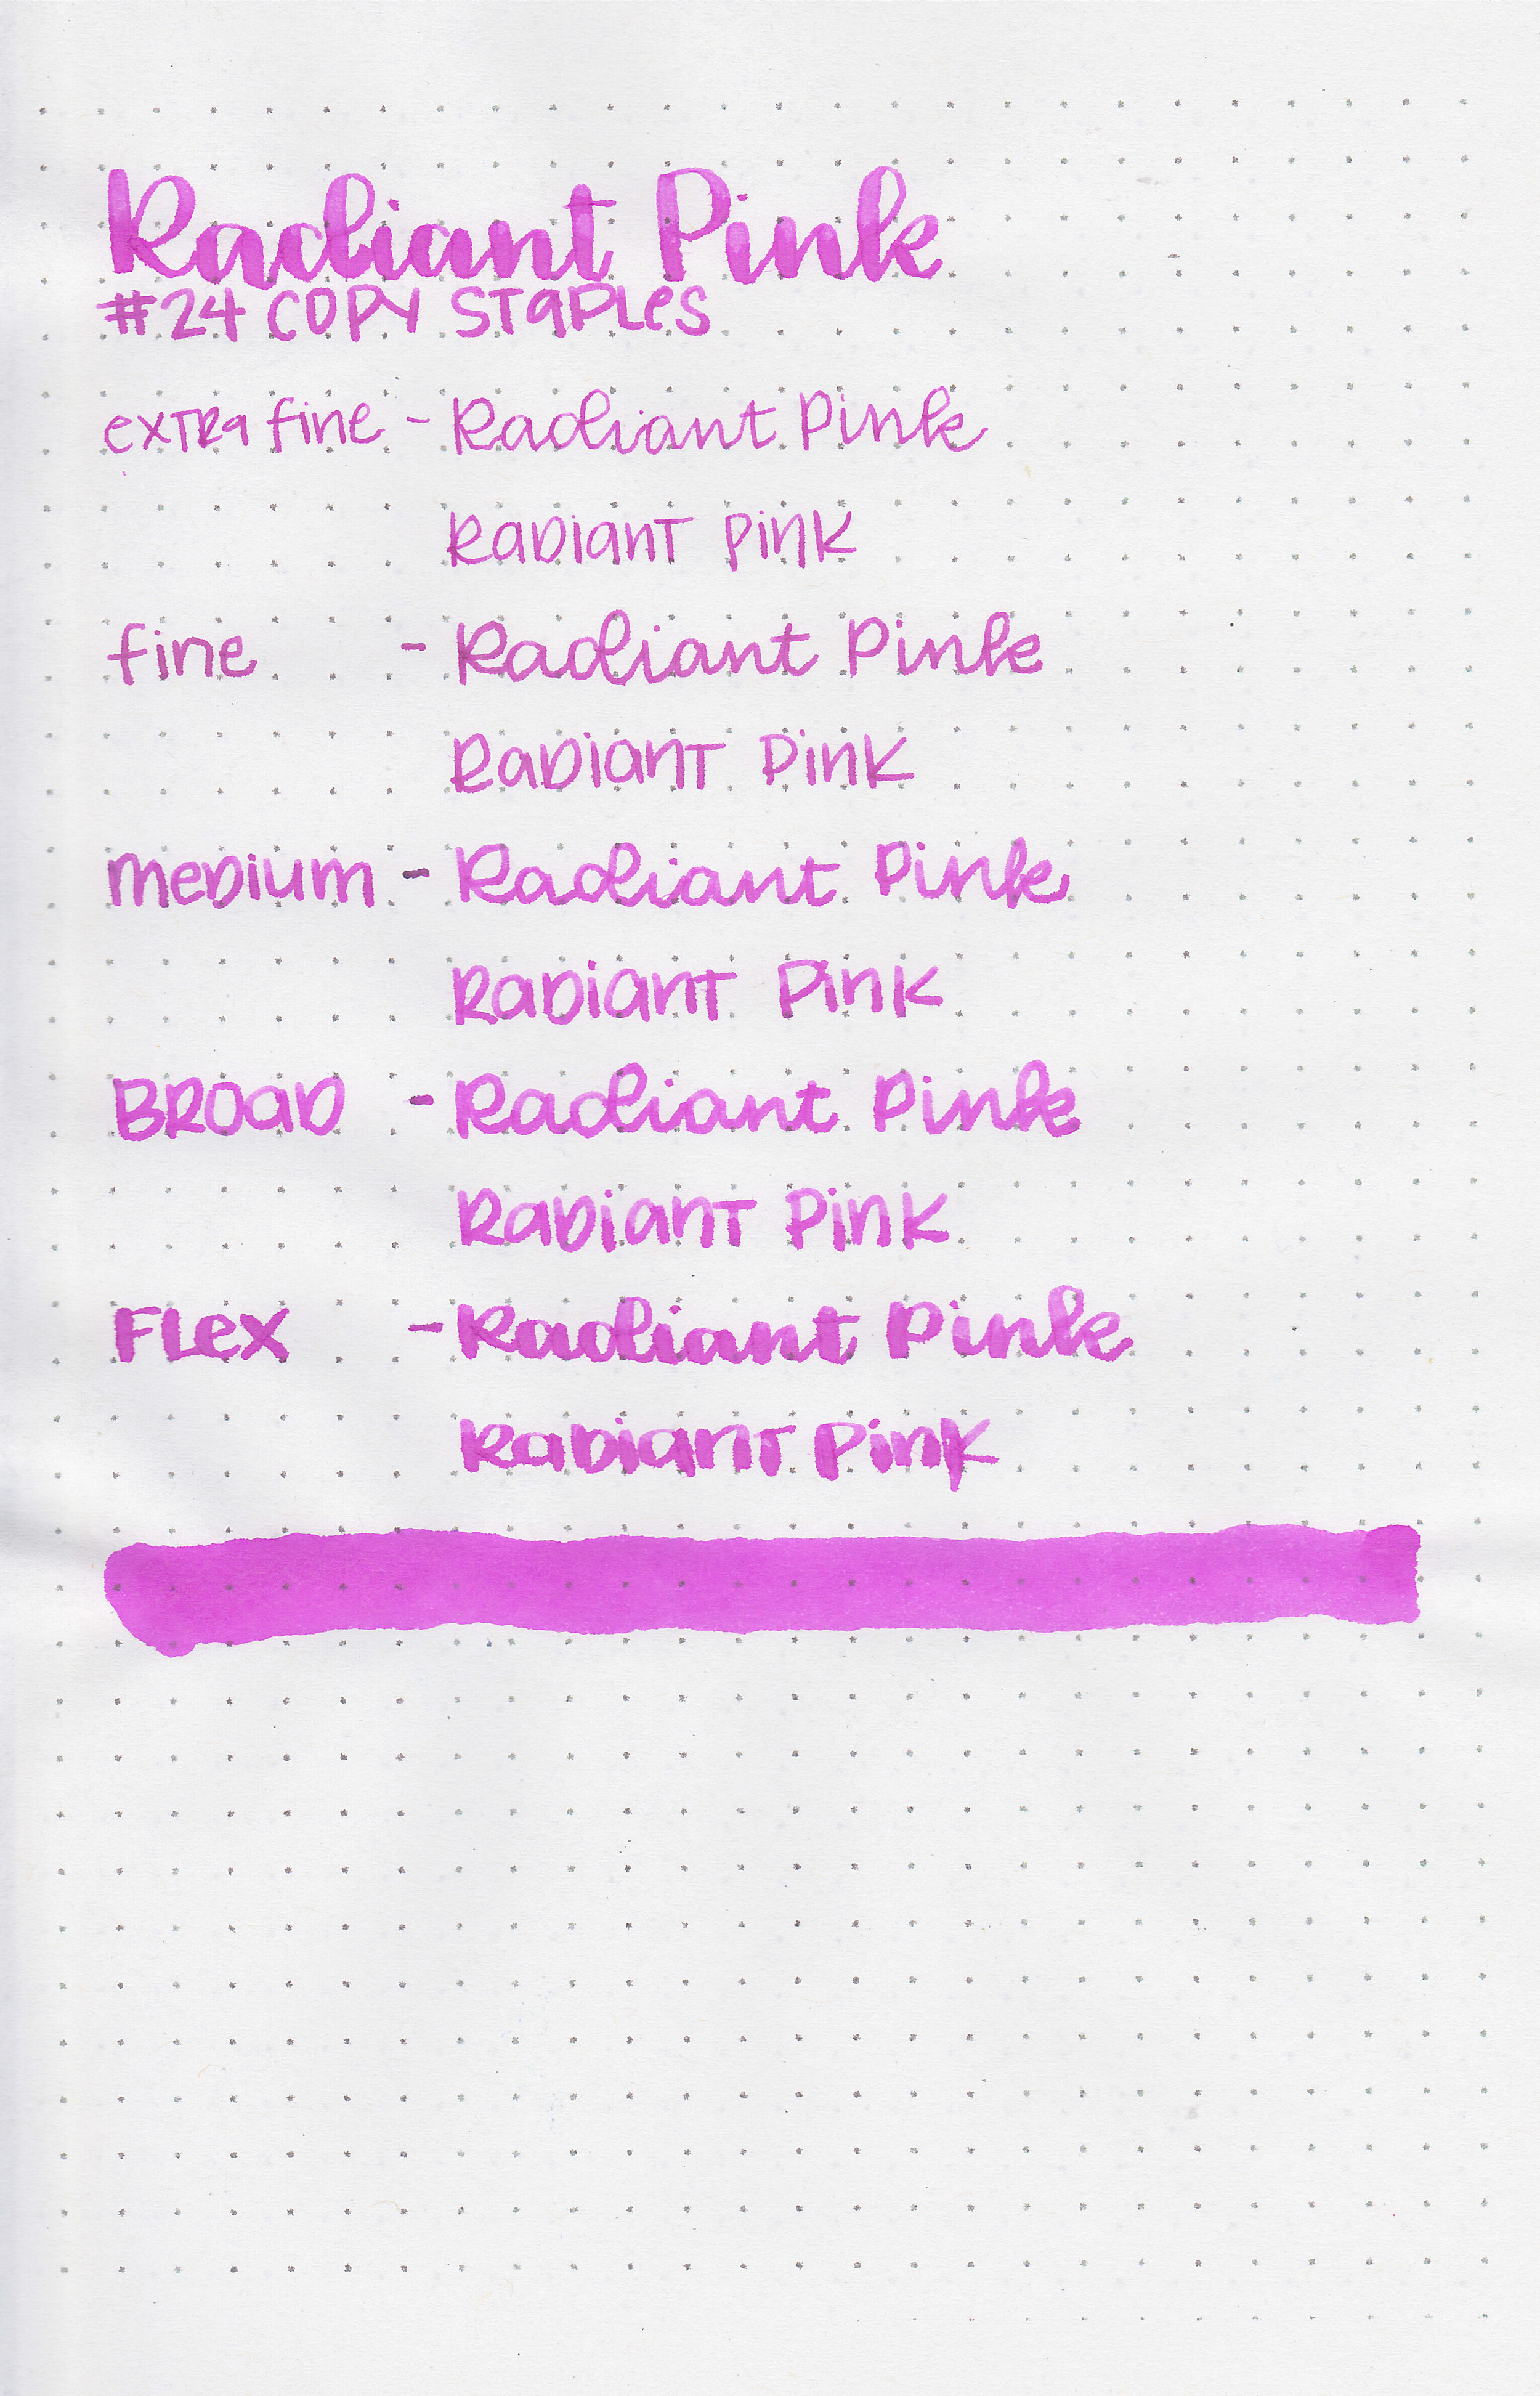 Radiant Pink
#24 COPY STaPLes
exTRa fine - Radiant Pink
RaDianT Pink
fine - Radiant Pink
RaDianT Pink
meDium - Radiant Pink
RaDianT Pink
BROaD - Radiant Pink
RaDianT Pink
FLex - Radiant Pink
RaDianT Pink